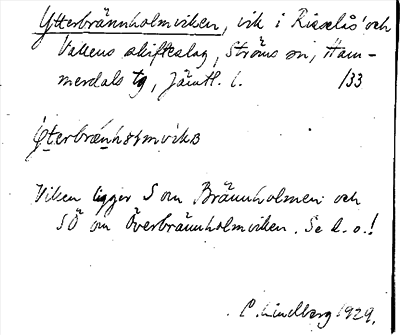 Ytterbrännholmviken, vik i Risselås och
Vallens skifteslag, Ströms sn, Ham-
merdals tg, Jämtl. l. 133
Viken ligger S om Brännholmen och
SÖ om Överbrännholmviken. Se d. o.!
C. Lindberg 1929.